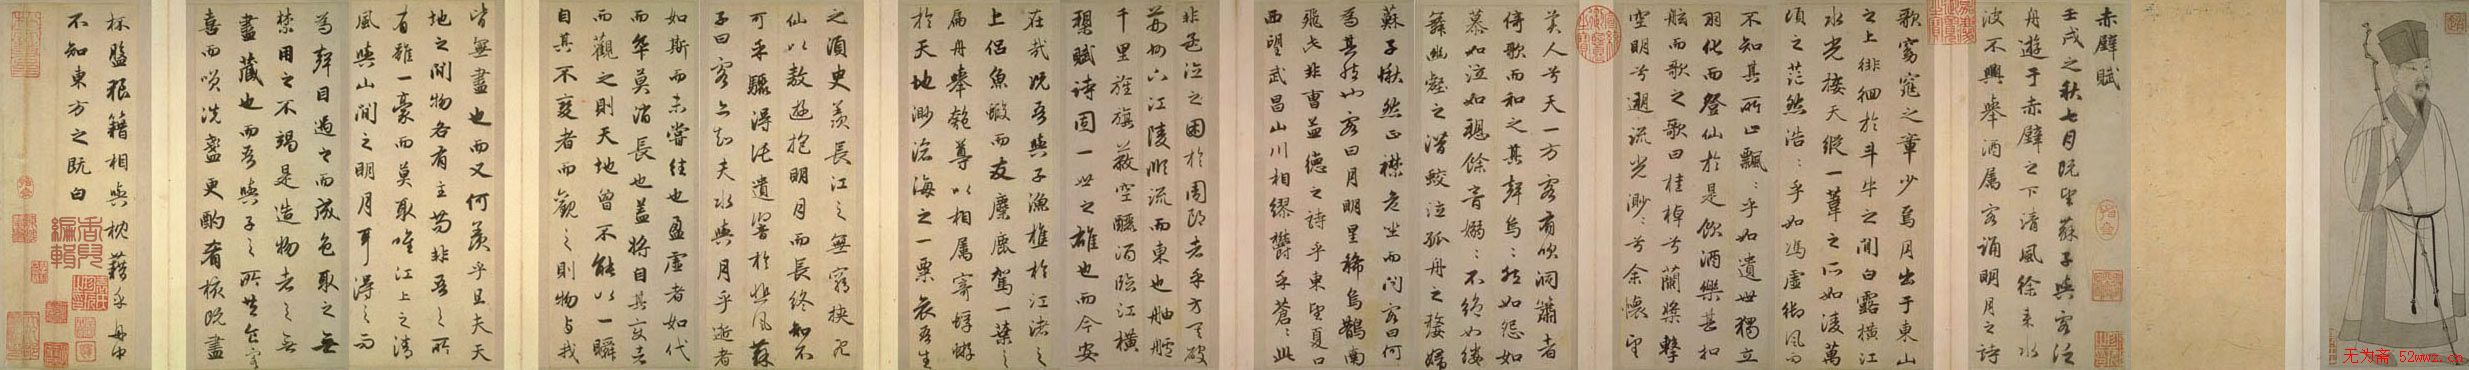 赤壁賦
壬戌之秋七月既望蘇子與客泛
舟遊于赤壁之下清風徐来水
波不興舉酒属客誦明月之詩
歌窈窕之章少焉月出于東山
之上徘徊於斗牛之間白露橫江
水光接天縱一葦之所如淩萬
頃之茫然浩〻乎如馮虛御風而
不知其所止飄〻乎如遺世獨立
羽化而登仙於是飲酒樂甚扣
舷而歌之歌曰桂棹兮蘭槳擊
空明兮遡流光渺〻兮余懷望
美人兮天一方客有吹洞簫者
倚歌而和之其聲嗚〻然如怨如
慕如泣如訴餘音嫋〻不絕如縷
舞幽壑之潛蛟泣孤舟之嫠婦
蘇子愀然正襟危坐而問客曰何
為其然也客曰月明星稀烏鵲南
飛此非曹孟德之詩乎東望夏口
西望武昌山川相繆鬱乎蒼〻此
非孟德之困於周郎者乎方其破
荊州下江陵順流而東也舳艫
千里旌旗蔽空釃酒臨江橫
槊賦詩固一世之雄也而今安
在哉况吾與子漁樵於江渚之
上侣魚蝦而友麋鹿駕一葉之
扁舟舉匏尊以相属寄蜉蝣
於天地渺滄海之一粟哀吾生
之須臾羨長江之無窮挾飛
仙以敖遊抱明月而長終知不
可乎驟得託遺響於悲風蘇
子曰客亦知夫水與月乎逝者
如斯而未嘗往也盈虛者如代
而卒莫消長也蓋將自其變者
而觀之則天地曾不能以一瞬
自其不變者而觀之則物與我
皆無盡也而又何羨乎且夫天
地之間物各有主苟非吾之所
有雖一毫而莫取唯江上之清
風與山間之明月耳得之而
為聲目遇之而成色取之無
禁用之不竭是造物者之無
盡藏也而吾與子之所共食客
喜而笑洗盞更酌肴核既盡
杯盤狼籍相與枕藉乎舟中
不知東方之既白
无为斋 52wwz.cn